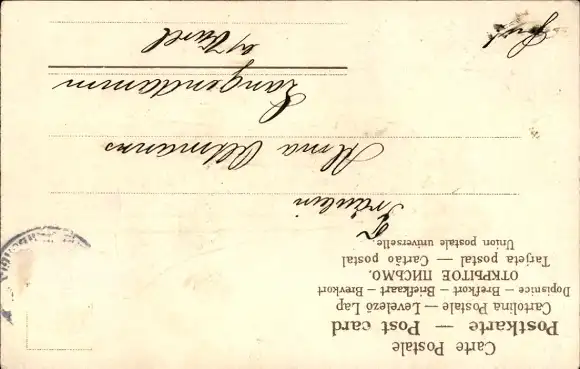 Carte Postale
Postkarte — Post card
Cartolina Postale — Levelező Lap
Dopisnice — Brefkort — Briefkaart — Brevkort
ОТКРЫТОЕ ПИСЬМО.
Tarjeta postal — Cartão postal
Union postale universelle.
Fräulein
Alma Oltmanns
Langendamm
b/ Varel